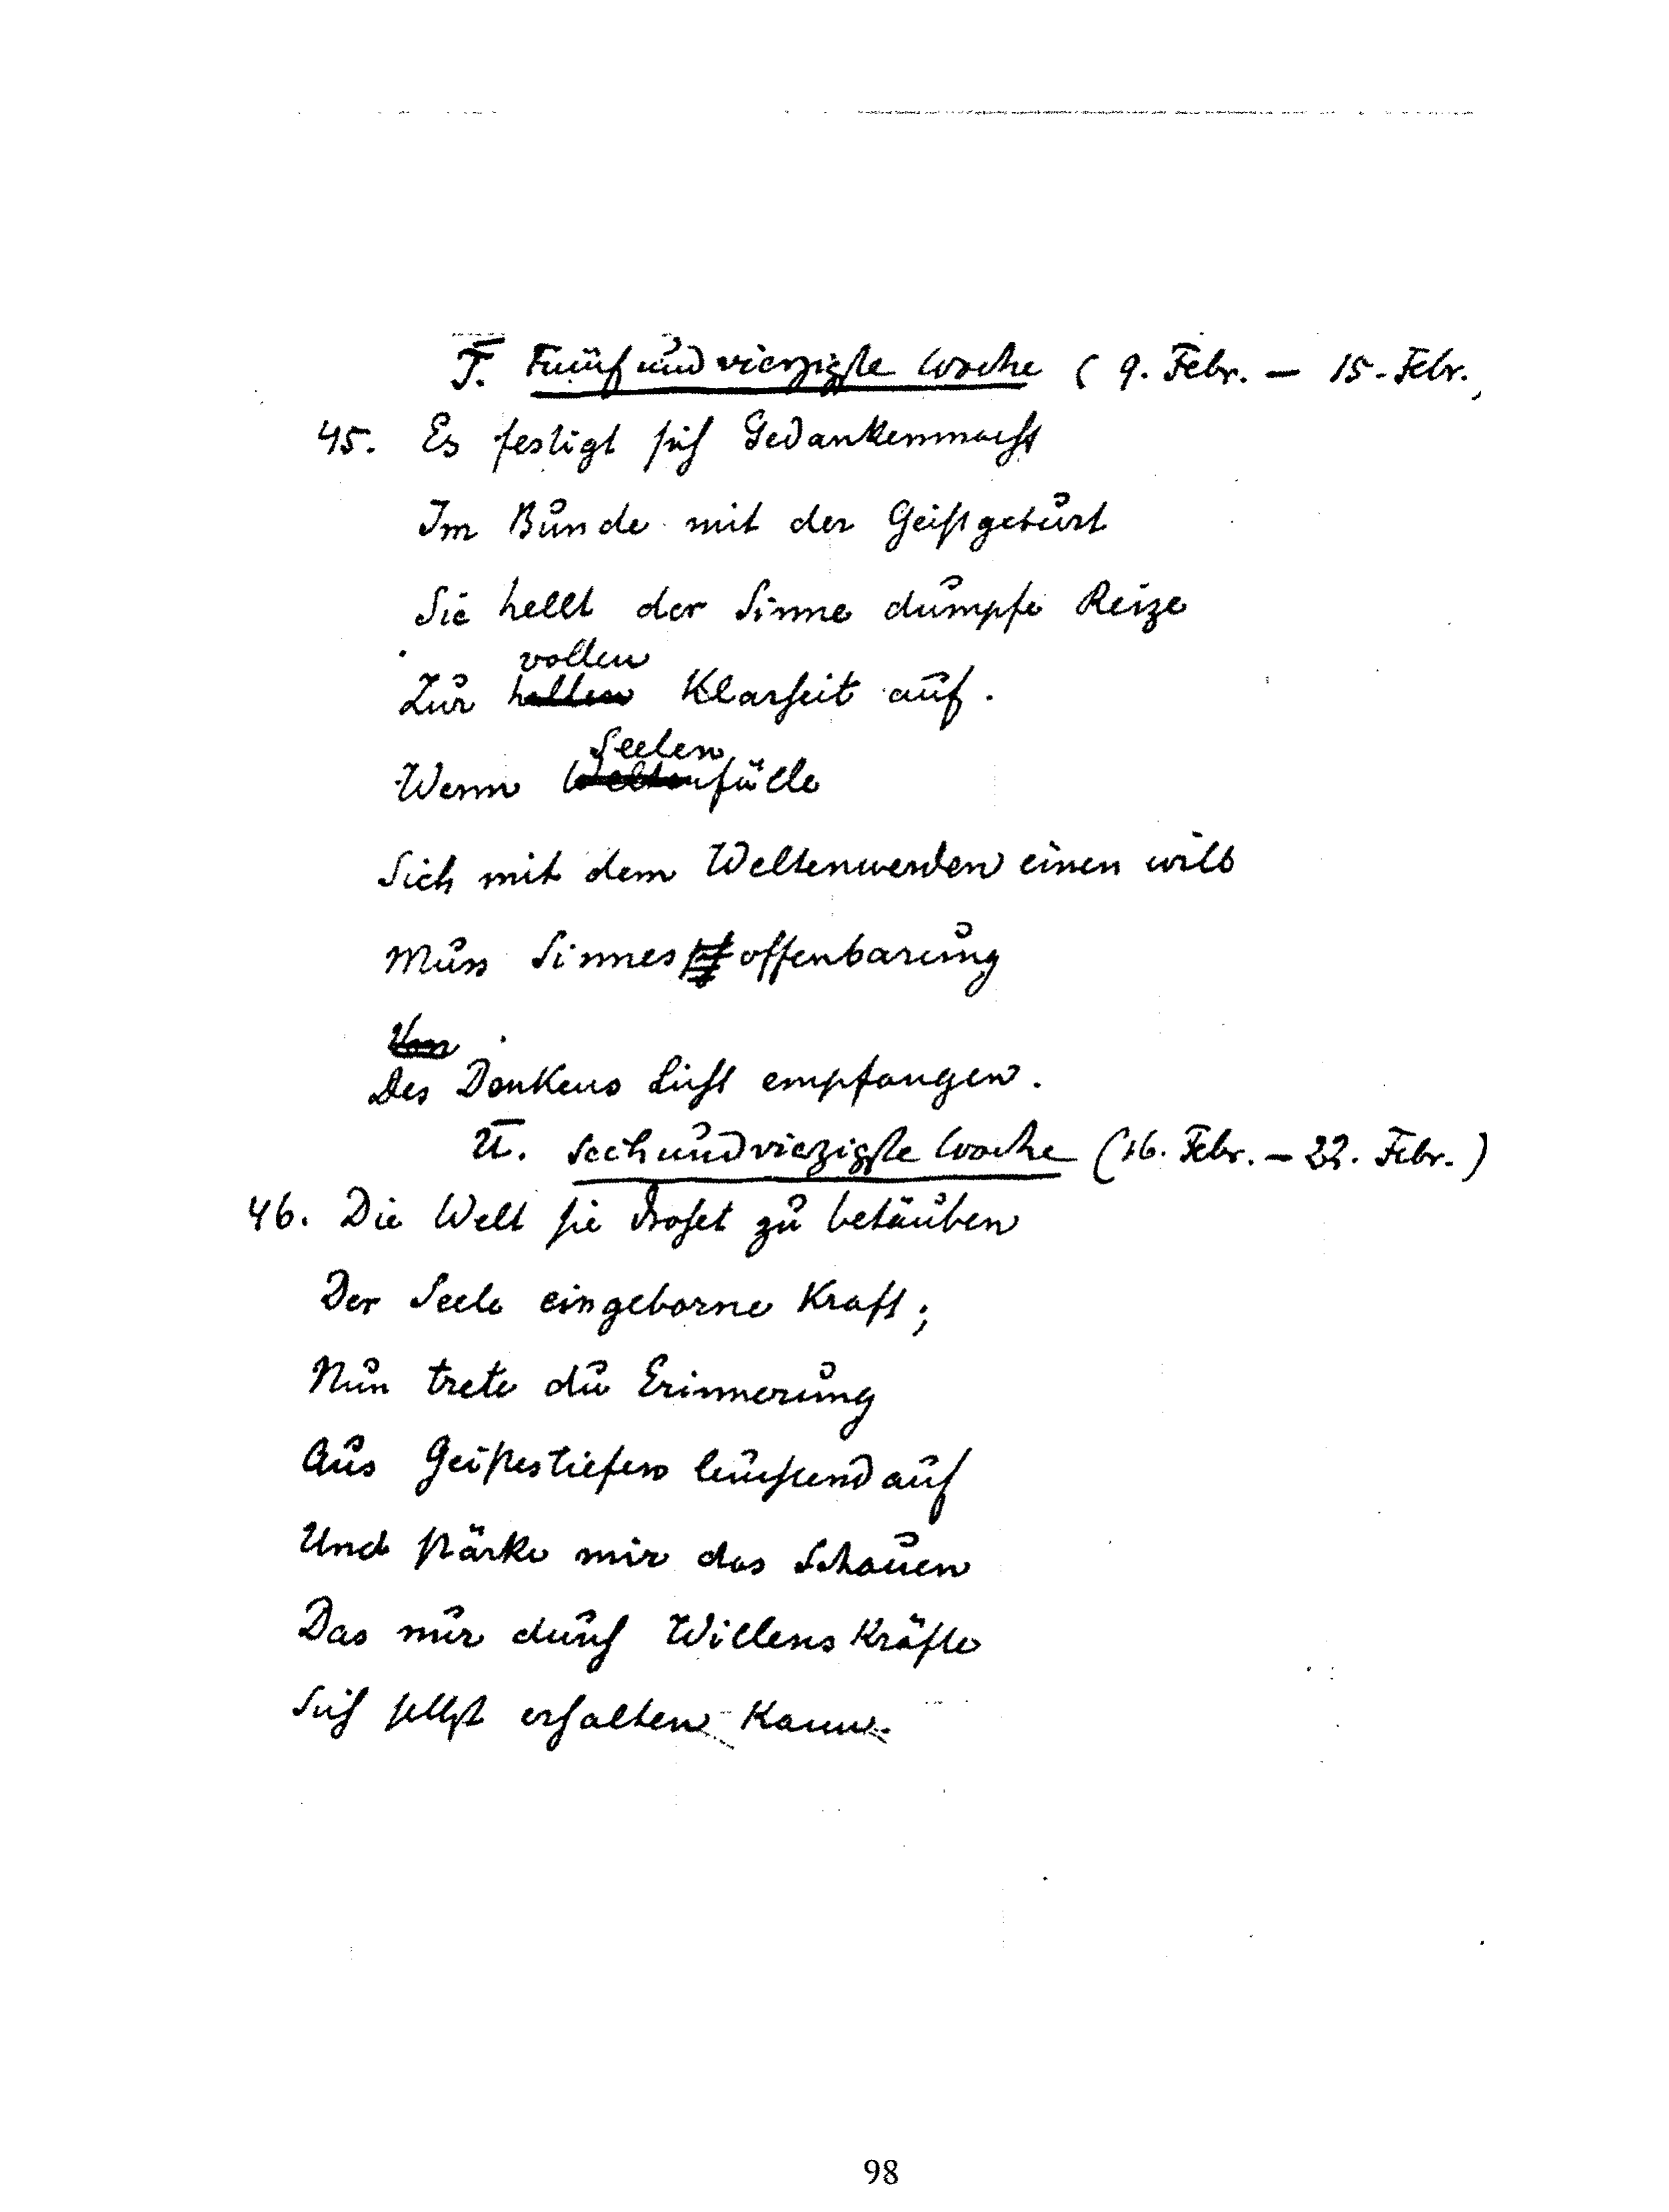 T̅. Fünfundvierzigste Woche ( 9. Febr. – 15. Febr.
45. Es festigt sich Gedankenmacht
Im Bunde mit der Geistgeburt
Sie hellt der Sinne dumpfe Reize
vollen
Zur hellen Klarheit auf.
Seelen
Wenn Weltenfülle
Sich mit dem Weltenwerden einen will
Muss Sinnes offenbarung
Von
Des Denkens Licht empfangen.
U̅. Sechundvierzigste Woche (16. Febr. – 22. Febr.)
46. Die Welt sie drohet zu betäuben
Der Seele eingeborne Kraft;
Nun trete du Erinnerung
Aus Geistestiefen leuchtend auf
Und stärke mir das Schauen
Das nur durch Willenskräfte
Sich selbst erhalten kann.
98